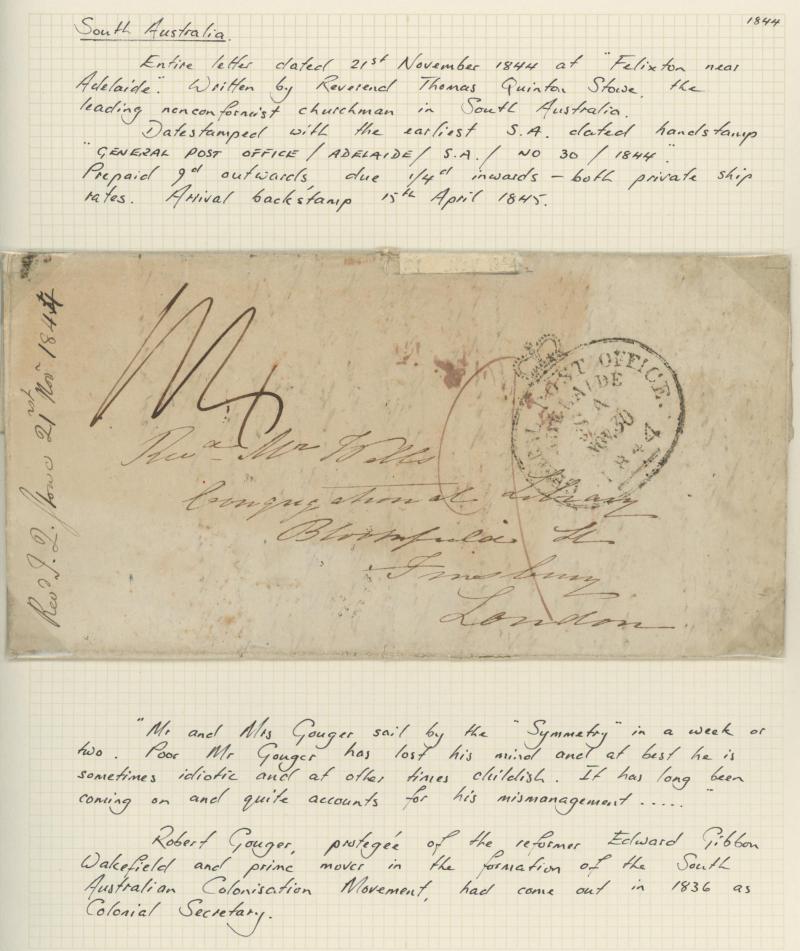 1844
South Australia.
Entire letter dated 21st November 1844 at "Felixton near
Adelaide". Written by Reverend Thomas Quinton Stowe, the
leading nonconformist churchman in South Australia.
Datestamped with the earliest S.A. dated handstamp
"GENERAL POST OFFICE / ADELAIDE / S.A. / NO 30 / 1844".
Prepaid 9d outwards due 1/4d inwards – both private ship
rates. Arrival backstamp 15th April 1845.
Revd T. Q. Stowe 21 Novr 1844
GENERAL POST OFFICE.
ADELAIDE
A
NOV 30
1844
Revd Mr Wells
Congregational Library
Bloomfield St
Finsbury
London
"Mr and Mrs Gouger sail by the "Symmetry" in a week or
two. Poor Mr Gouger has lost his mind and at best he is
sometimes idiotic and at other times childish. It has long been
coming on and quite accounts for his mismanagement ....."
Robert Gouger, protegée of the reformer Edward Gibbon
Wakefield and prime mover in the formation of the South
Australian Colonisation Movement, had come out in 1836 as
Colonial Secretary.